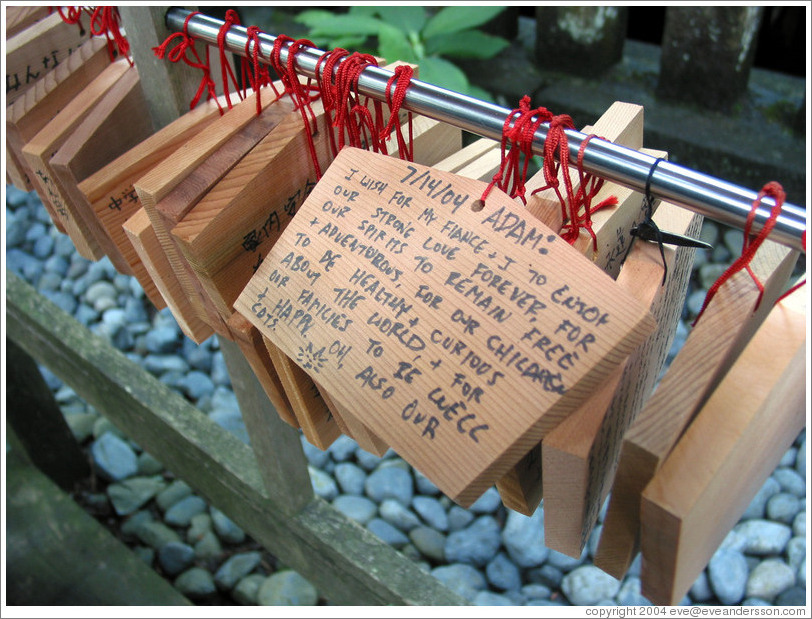 7/14/04 ADAM:
I WISH FOR MY FIANCE + I TO ENJOY
OUR STRONG LOVE FOREVER, FOR
OUR SPIRITS TO REMAIN FREE
+ ADVENTUROUS, FOR OUR CHILDREN
TO BE HEALTHY + CURIOUS
ABOUT THE WORLD, + FOR
OUR FAMILIES TO BE WELL
& HAPPY. OH, ALSO OUR
CATS.
copyright © 2004 eve@eveandersson.com